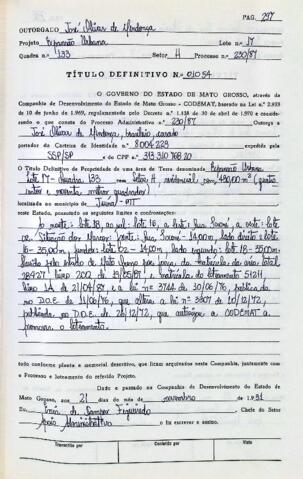 PAG. 297
OUTORGADO José Olizar de Mendonça
Projeto Expansão Urbana Lote n.º 17
Quadra n.º 133 Setor H Processo n.º 230/87
TÍTULO DEFINITIVO N.º 01054
O GOVERNO DO ESTADO DE MATO GROSSO, através da
Companhia de Desenvolvimento do Estado de Mato Grosso - CODEMAT, baseado na Lei n.º 2.933
de 10 de junho de 1969, regulamentada pelo Decreto n.º 1.138 de 30 de abril de 1970 e conside-
rando o que consta do Processo Administrativo n.º 230/87 Outorga a
José Olizar de Mendonça, brasileiro, casado
portador da Carteira de Identidade n.º 8004229 expedida pela
SSP/SP e de CPF n.º 313 310 768 20
O Título Definitivo de Propriedade de uma área de Terra denominada Expansão Urbana
Lote 17 - Quadra 133 setor H, residencial com 490,00 m² (quatro-
centos e noventa metros quadrados)
localizada no município de Juína - MT
neste Estado, possuindo os seguintes limites e confrontações:
Ao norte: lote 18, ao sul: lote 16, a leste: lote
02. frente: 14,00m, lado direito: Lote
16 - 35,00m, fundos: Lote 02 - 14,00m, lado esquerdo: lote 18 - 35,00m.
matrícula da área total
livro 202 e matrícula do loteamento 5124
livro 1A de 21/04/87 e a lei nº 3744 de 10/06/76, publicada
no D.O.E de 11/06/76, que altera a lei nº 3307 de 10/12/72,
publicada no D.O.E. de 26/12/72, que autoriza a CODEMAT a
promover o loteamento.
tudo conforme planta e memorial descritivo, que ficam arquivados nesta Companhia, juntamente com
o Processo e loteamento do referido Projeto.
Dado e passado na Companhia de Desenvolvimento do Estado de
Mato Grosso, aos 21 dias do mês de novembro de 1991
Eu, Figueiredo Chefe do Setor
Apoio Administrativo o fiz escrever e assino.
Transcrito por Conferido por Visto